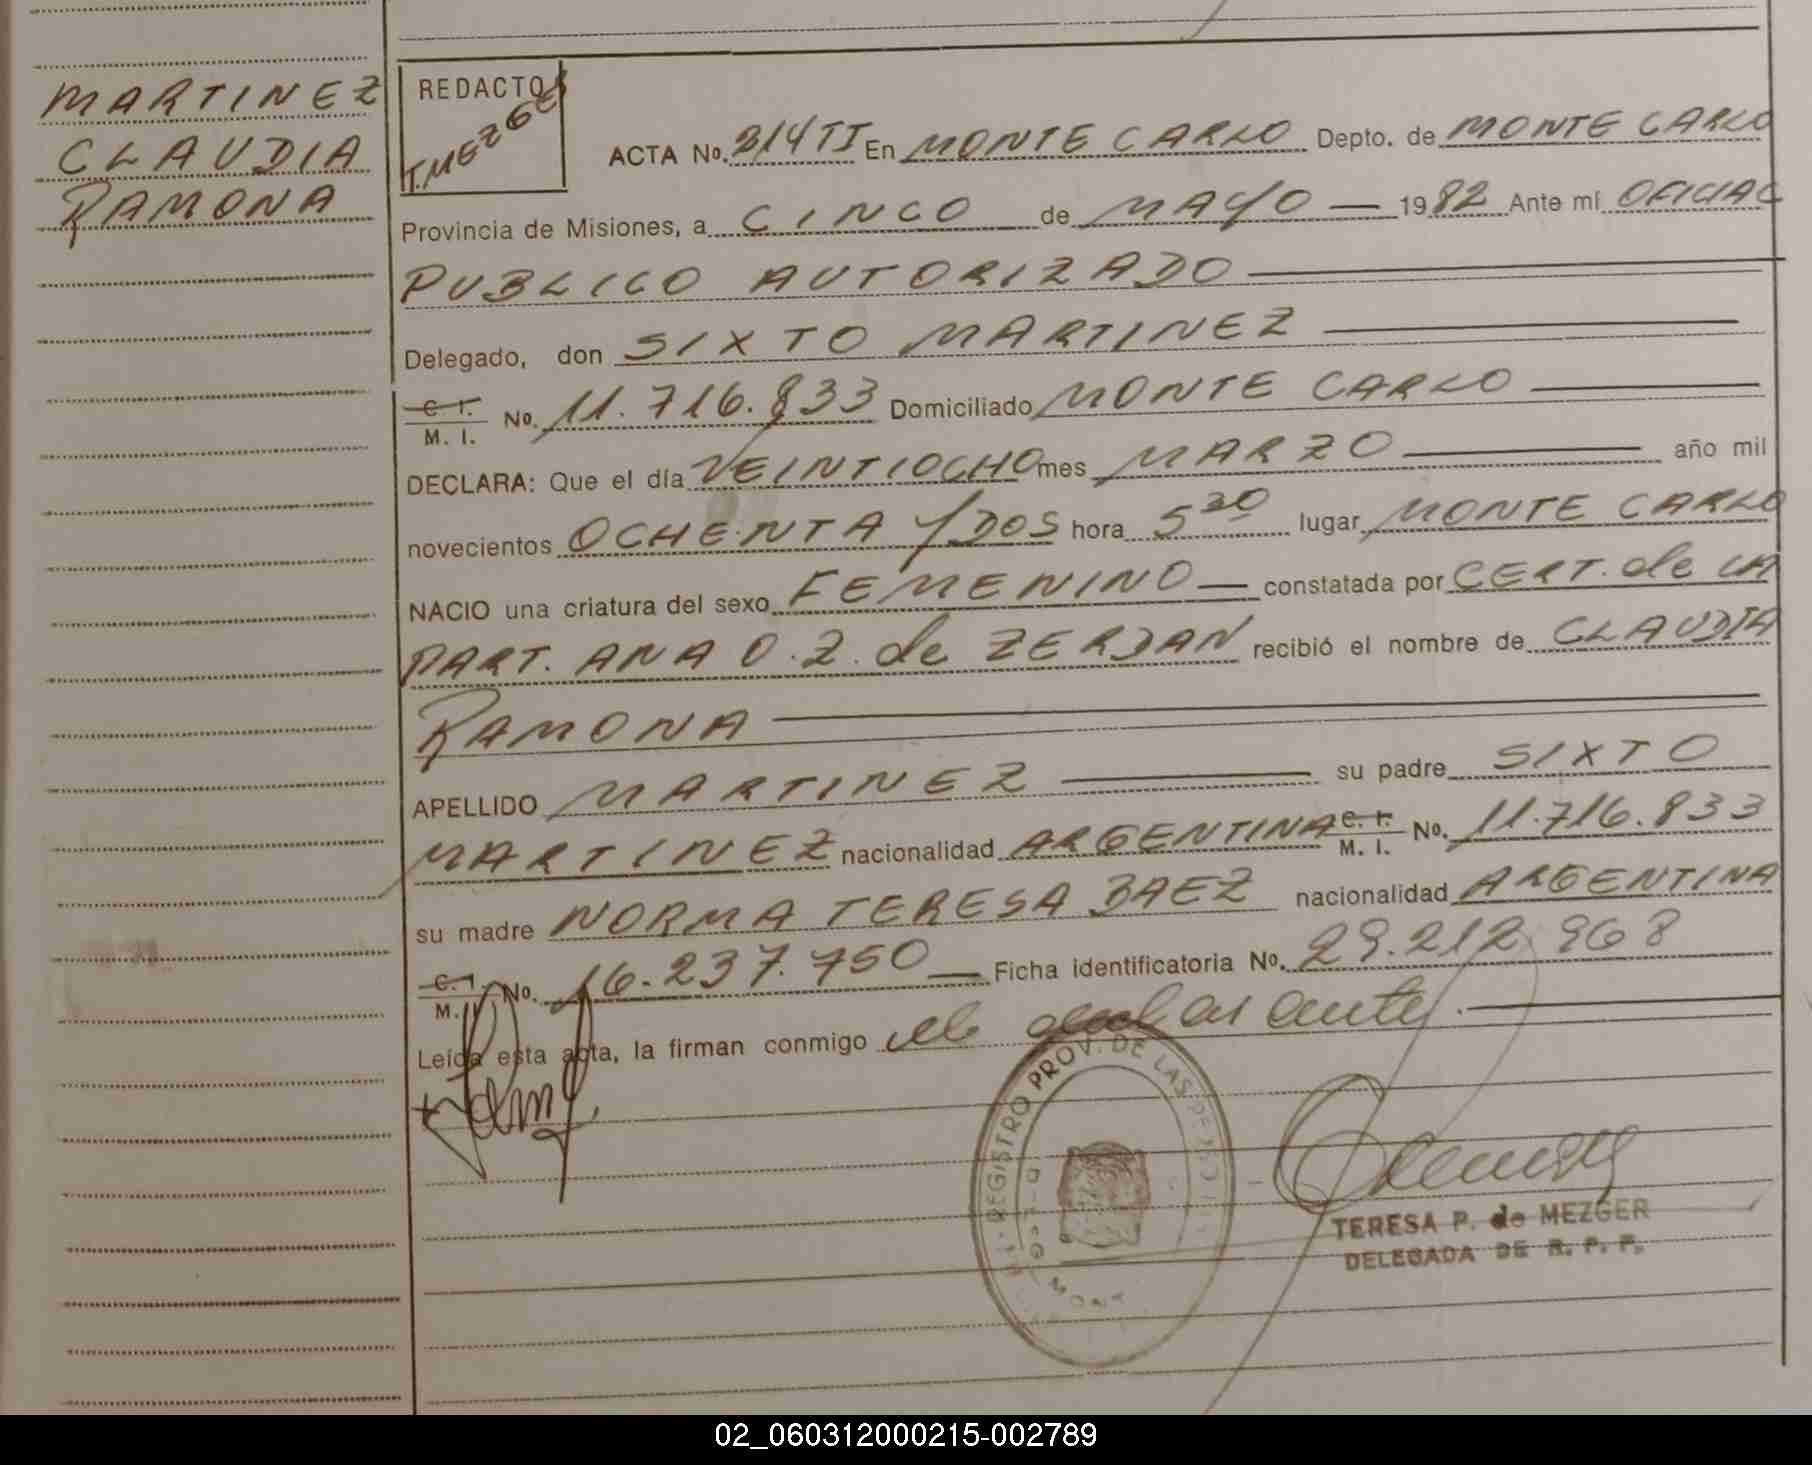 MARTINEZ
CLAUDIA
RAMONA
REDACTOR
T. MEZGER
ACTA No. 214 TI En MONTE CARLO Depto. de MONTE CARLO
Provincia de Misiones, a CINCO de MAYO — 1982 Ante mí OFICIAL
PUBLICO AUTORIZADO
Delegado, don SIXTO MARTINEZ
C. I.
M. I. No. 11.716.833 Domiciliado MONTE CARLO
DECLARA: Que el día VEINTIOCHO mes MARZO año mil
novecientos OCHENTA Y DOS hora 5 30 lugar MONTE CARLO
NACIO una criatura del sexo FEMENINO — constatada por CERT. de LA
PART. ANA O. Z. de ZERDAN recibió el nombre de CLAUDIA
RAMONA
APELLIDO MARTINEZ su padre SIXTO
MARTINEZ nacionalidad ARGENTINA C. I. M. I. No. 11.716.833
su madre NORMA TERESA BAEZ nacionalidad ARGENTINA
C. I. M. I. No. 16.237.750 — Ficha identificatoria No. 29.212.968
Leída esta acta, la firman conmigo el declarante.
REGISTRO PROV. DE LAS PERSO
TERESA P. de MEZGER
DELEGADA DE R. P. P.
02_060312000215-002789